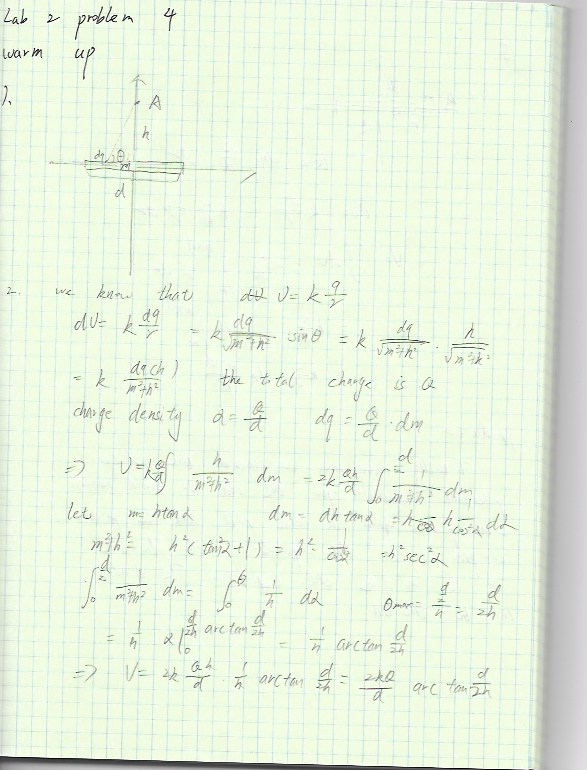 Lab 2 problem 4
warm up
1.
A
h
dq θ m
d
2. we know that dU V = k q/r
dU = k dq/r = k dq/√(m²+h²) sinθ = k dq/√(m²+h²) · h/√(m²+h²)
= k dq(h)/(m²+h²) the total charge is Q
charge density α = Q/d dq = Q/d · dm
=> V = k Q/d ∫ h/(m²+h²) dm = 2k Qh/d ∫₀^(d/2) 1/(m²+h²) dm
let m = h tanα dm = dh tanα = h 1/cos²α dα
m²+h² = h²(tan²α+1) = h² · 1/cos²α = h² sec²α
∫₀^(d/2) 1/(m²+h²) dm = ∫₀^θ 1/h dα θmax = (d/2)/h = d/2h
= 1/h α |₀ arctan d/2h = 1/h arctan d/2h
=> V = 2k Qh/d · 1/h arctan d/2h = 2kQ/d arctan d/2h